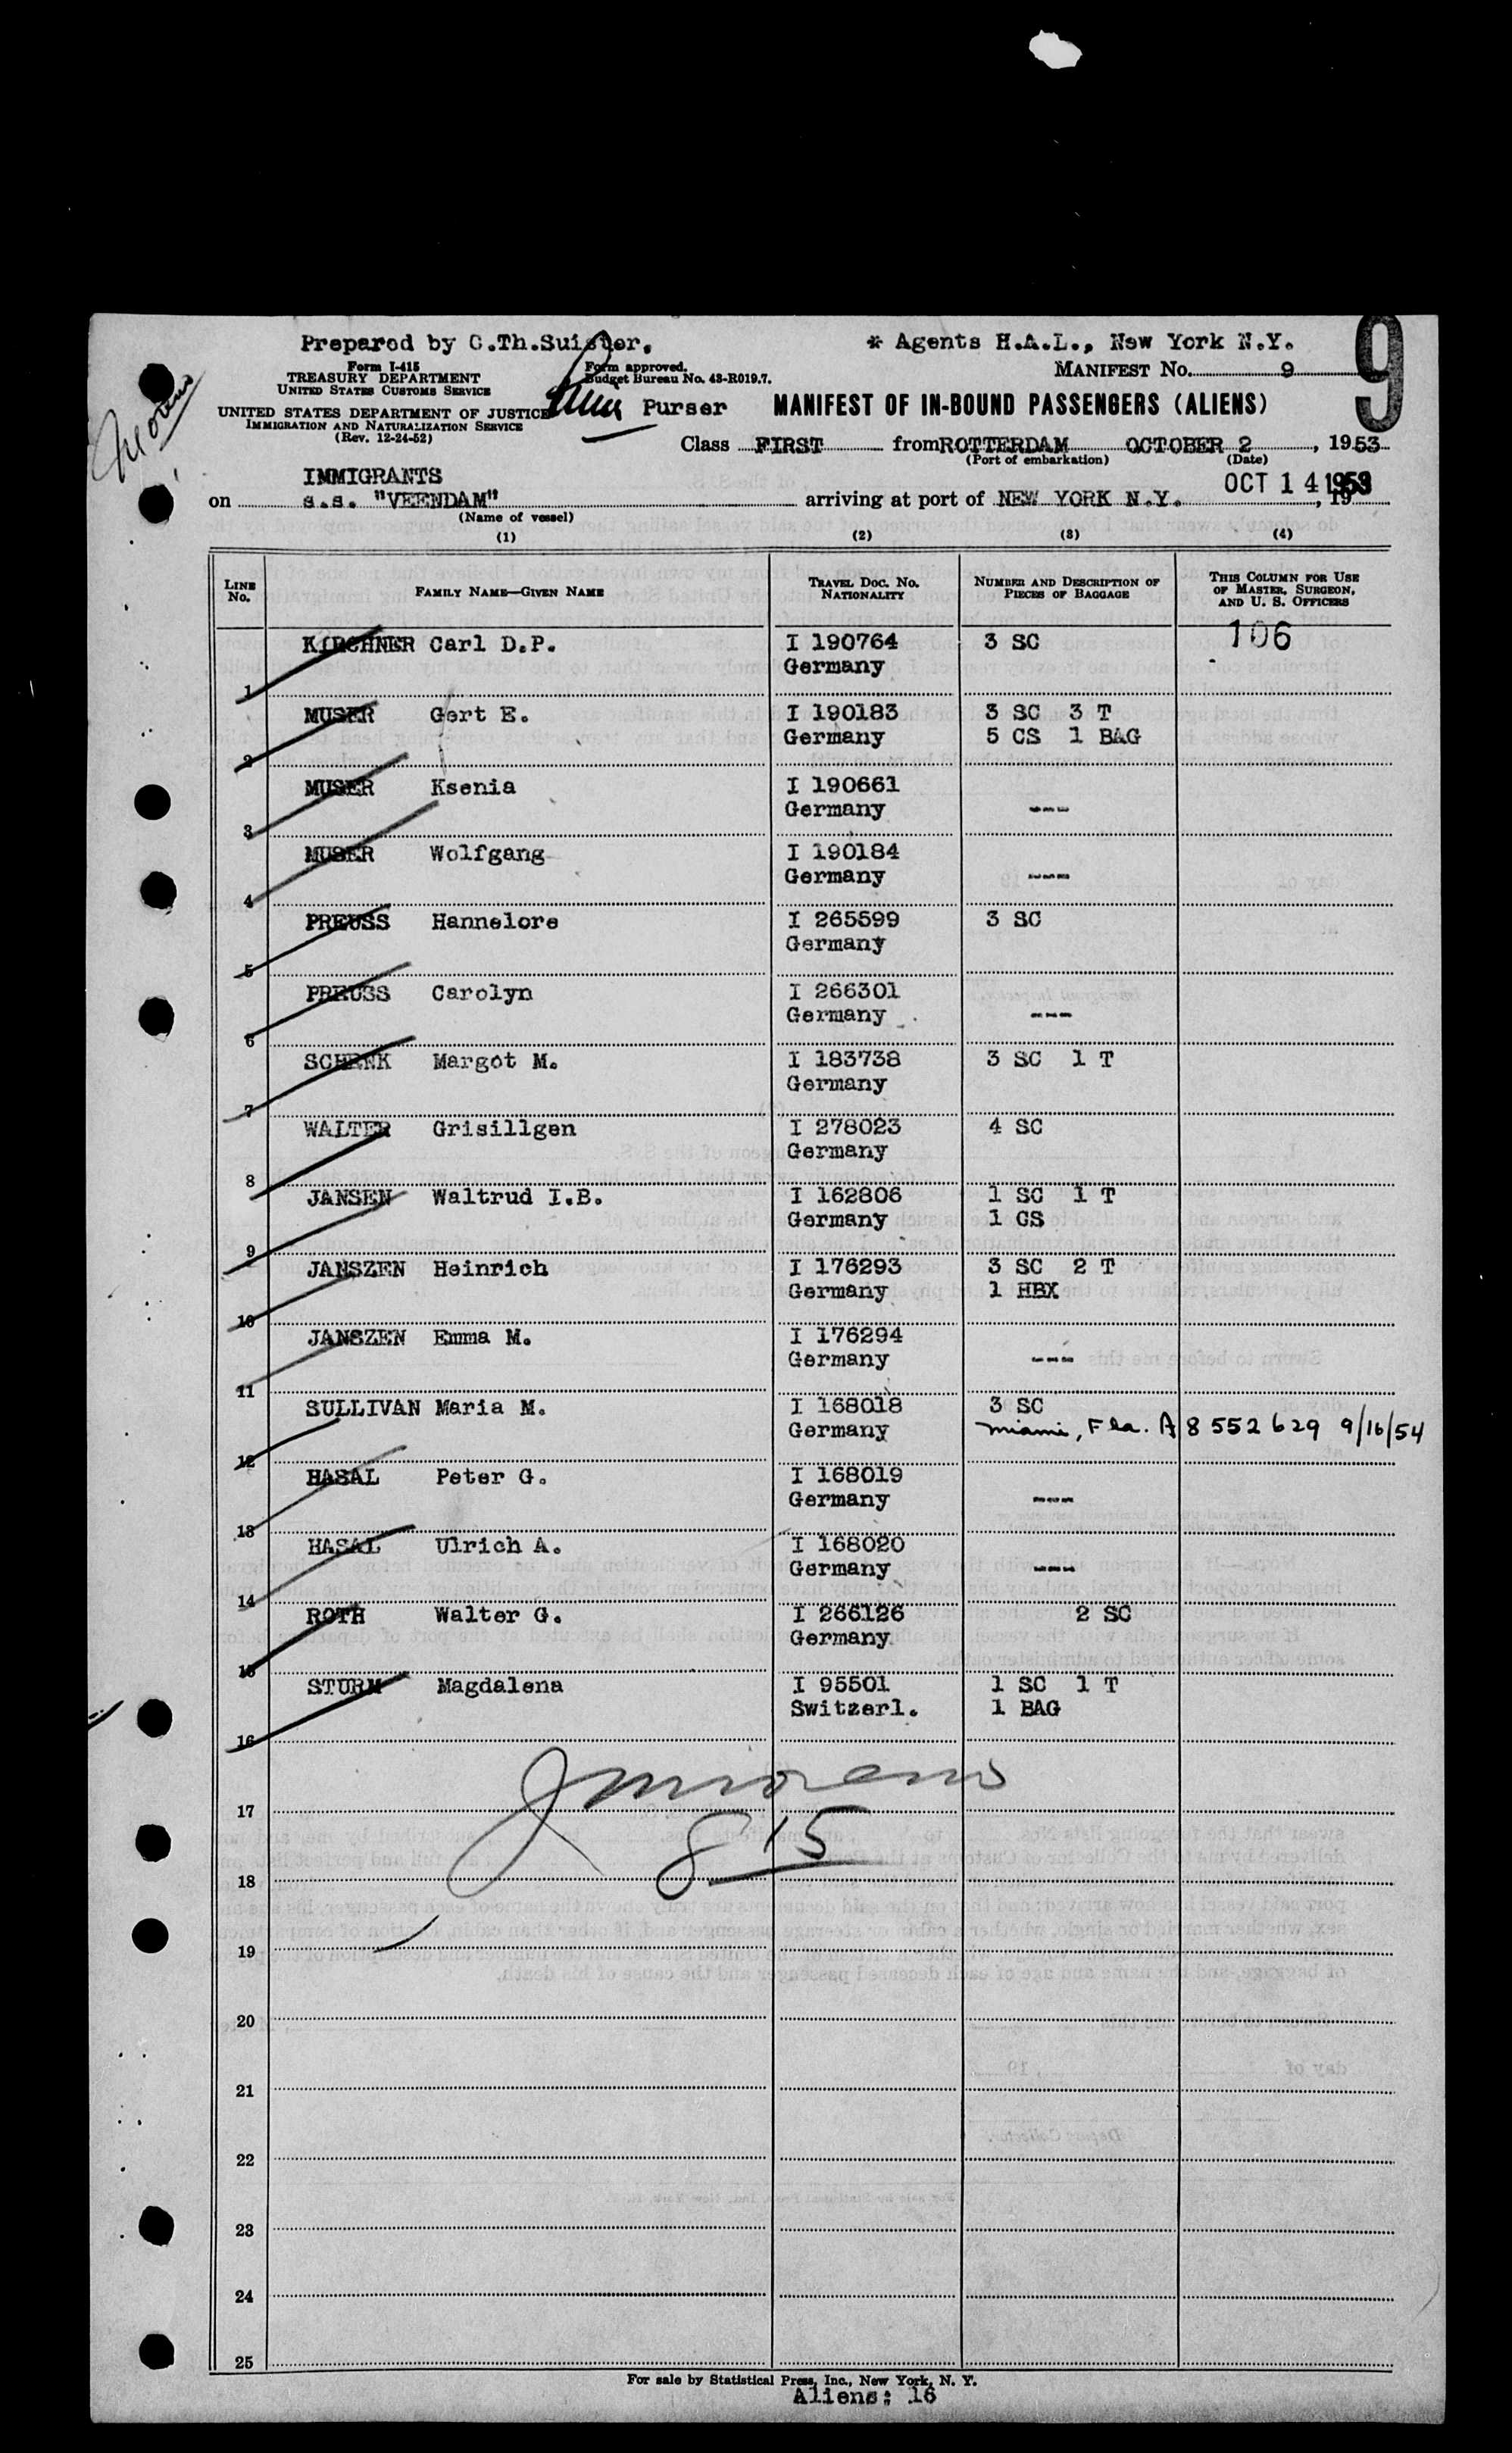 Prepared by C.Th.Suister.
* Agents H.A.L., New York N.Y.
9
Form I-415
TREASURY DEPARTMENT
UNITED STATES CUSTOMS SERVICE
Form approved.
Budget Bureau No. 43-R019.7.
MANIFEST No. 9
UNITED STATES DEPARTMENT OF JUSTICE
IMMIGRATION AND NATURALIZATION SERVICE
(Rev. 12-24-52)
Purser
MANIFEST OF IN-BOUND PASSENGERS (ALIENS)
Class FIRST from ROTTERDAM OCTOBER 2, 1953
(Port of embarkation) (Date)
IMMIGRANTS
on s.s. "VEENDAM" arriving at port of NEW YORK N.Y. OCT 14 1953, 19
(Name of vessel)
(1) (2) (3) (4)
LINE No. FAMILY NAME—GIVEN NAME TRAVEL DOC. NO. NATIONALITY NUMBER AND DESCRIPTION OF PIECES OF BAGGAGE THIS COLUMN FOR USE OF MASTER, SURGEON, AND U. S. OFFICERS
KIRCHNER Carl D.P. I 190764 3 SC 106
1 Germany
MUSER Gert E. I 190183 3 SC 3 T
2 Germany 5 CS 1 BAG
MUSER Ksenia I 190661
3 Germany ---
MUSER Wolfgang I 190184
4 Germany ---
PREUSS Hannelore I 265599 3 SC
5 Germany
PREUSS Carolyn I 266301
6 Germany ---
SCHENK Margot M. I 183738 3 SC 1 T
7 Germany
WALTER Grisillgen I 278023 4 SC
8 Germany
JANSEN Waltrud I.B. I 162806 1 SC 1 T
9 Germany 1 CS
JANSZEN Heinrich I 176293 3 SC 2 T
10 Germany 1 HBX
JANSZEN Emma M. I 176294
11 Germany ---
SULLIVAN Maria M. I 168018 3 SC
12 Germany Miami, Fla. A 8 552 629 9/16/54
HASAL Peter G. I 168019
13 Germany ---
HASAL Ulrich A. I 168020
14 Germany ---
ROTH Walter G. I 266126 2 SC
15 Germany
STURM Magdalena I 95501 1 SC 1 T
16 Switzerl. 1 BAG
17
8 15
18
19
20
21
22
23
24
25
For sale by Statistical Press, Inc., New York, N. Y.
Aliens: 16